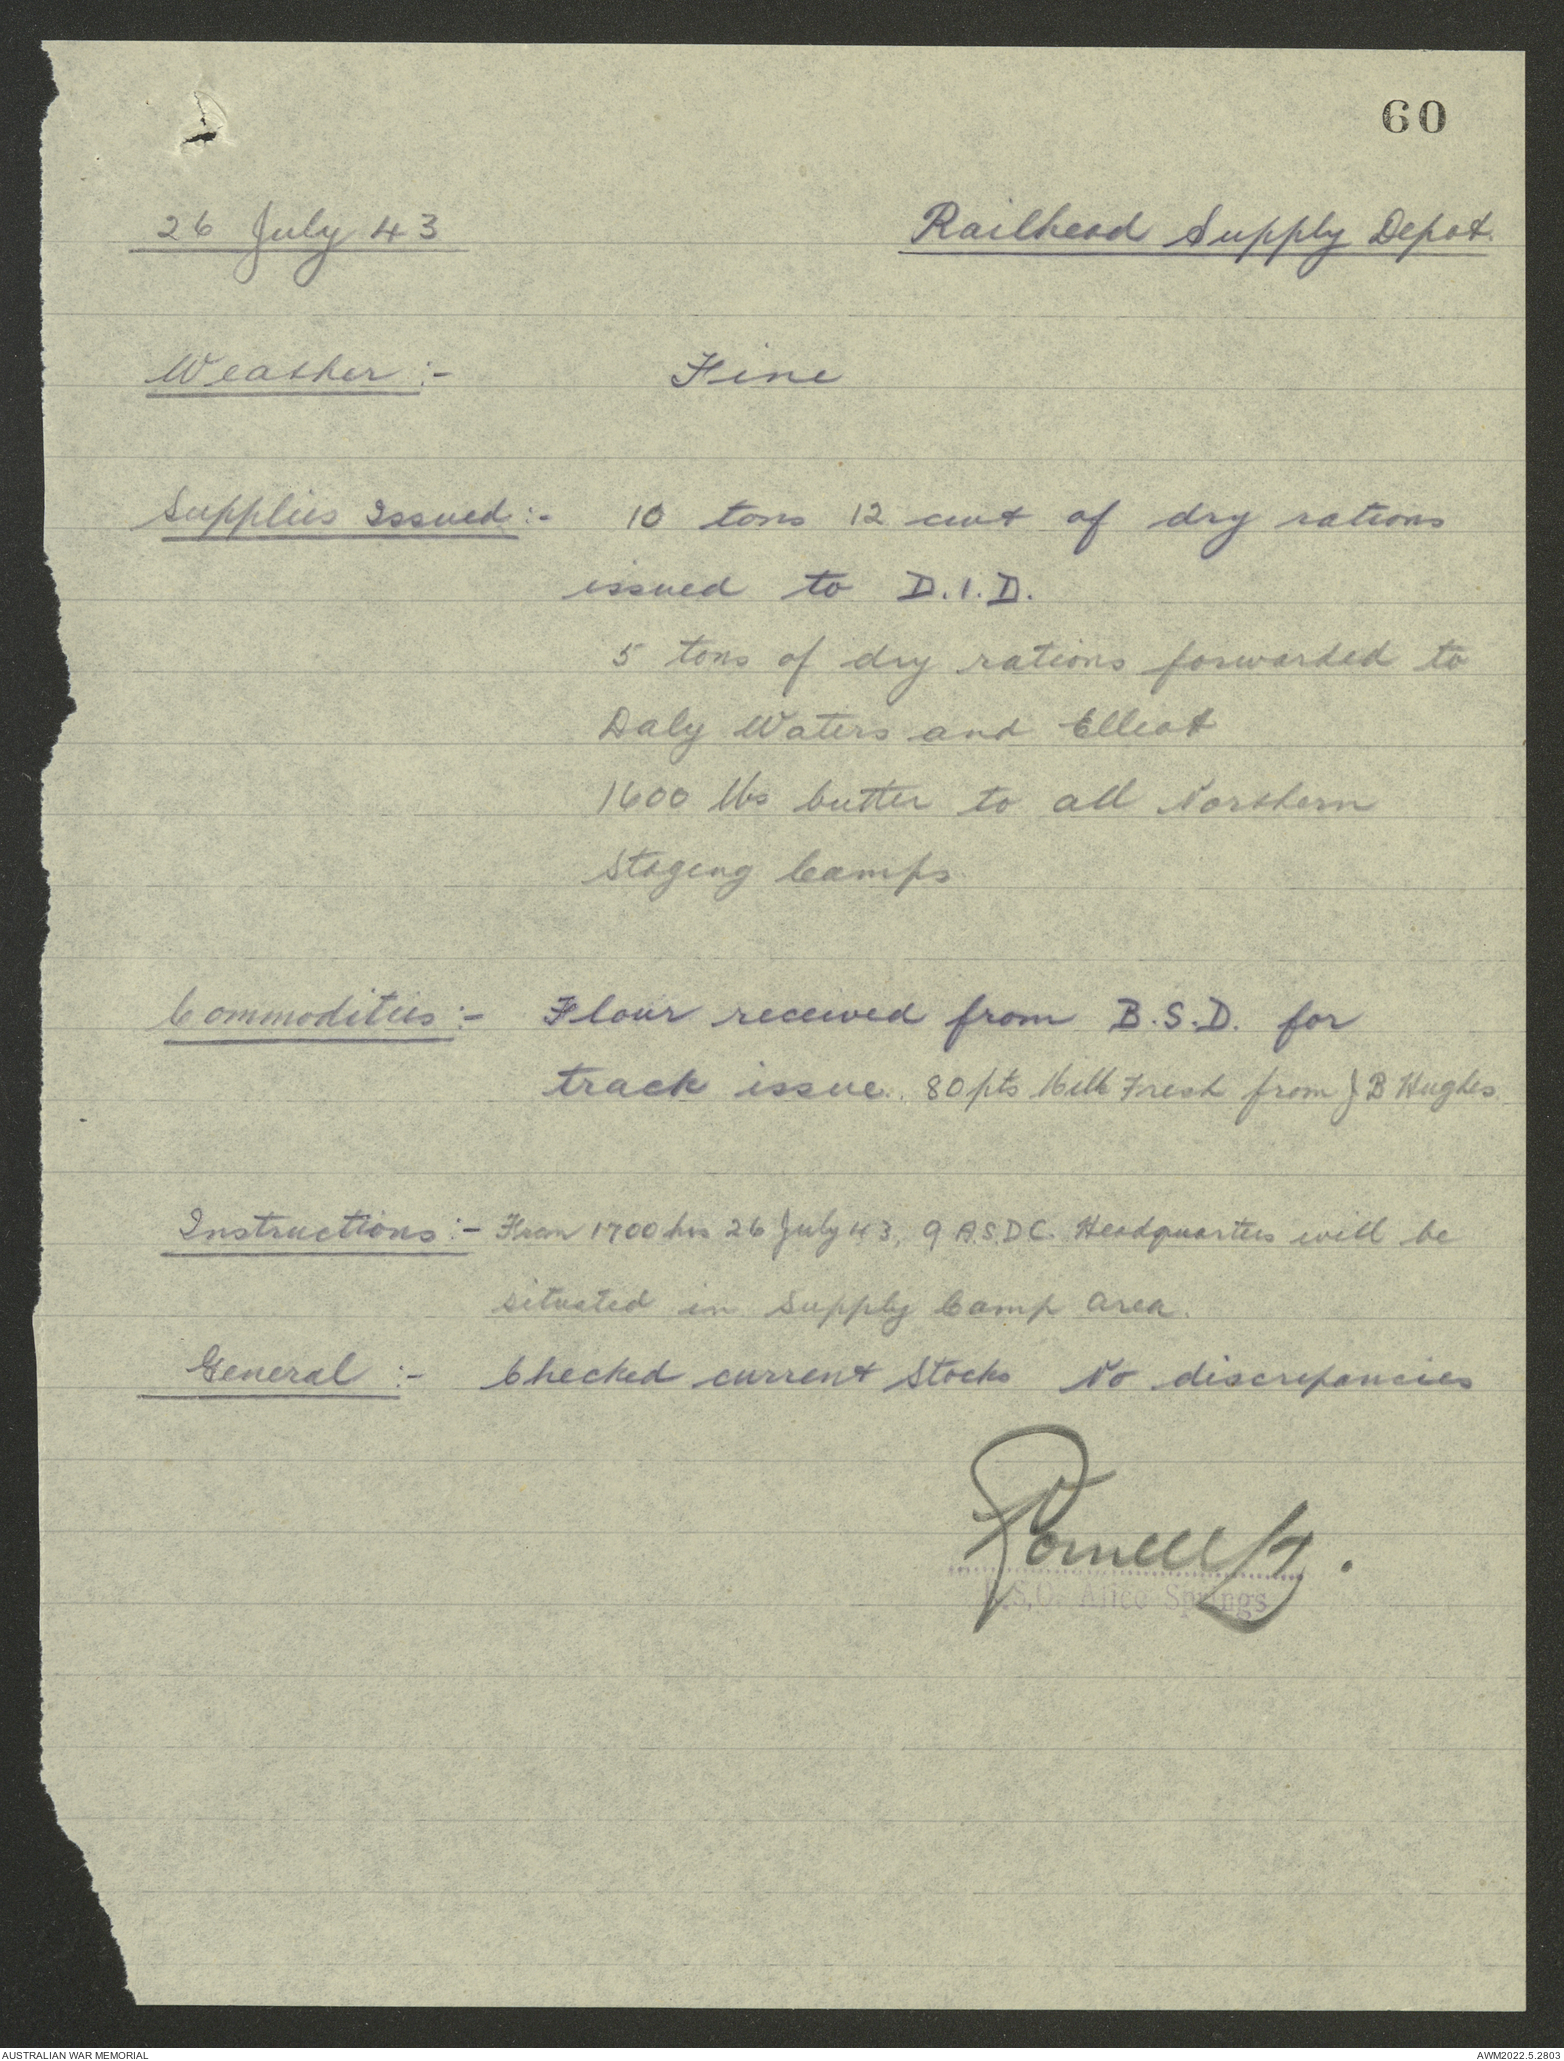 60
26 July 43 Railhead Supply Depot.
Weather :- Fine
Supplies Issued :- 10 tons 12 cwt of dry rations
issued to D.I.D.
5 tons of dry rations forwarded to
Daly Waters and Elliot
1600 lbs butter to all Northern
Staging Camps
Commodities :- Flour received from B.S.D. for
track issue. 80 pts Milk Fresh from J B Hughes.
Instructions :- From 1700 hrs 26 July 43, 9 A.S.D.C. Headquarters will be
situated in Supply Camp Area.
General :- Checked current Stocks No discrepancies
Lt.
S.O. Alice Springs
AUSTRALIAN WAR MEMORIAL AWM2022.5.2803